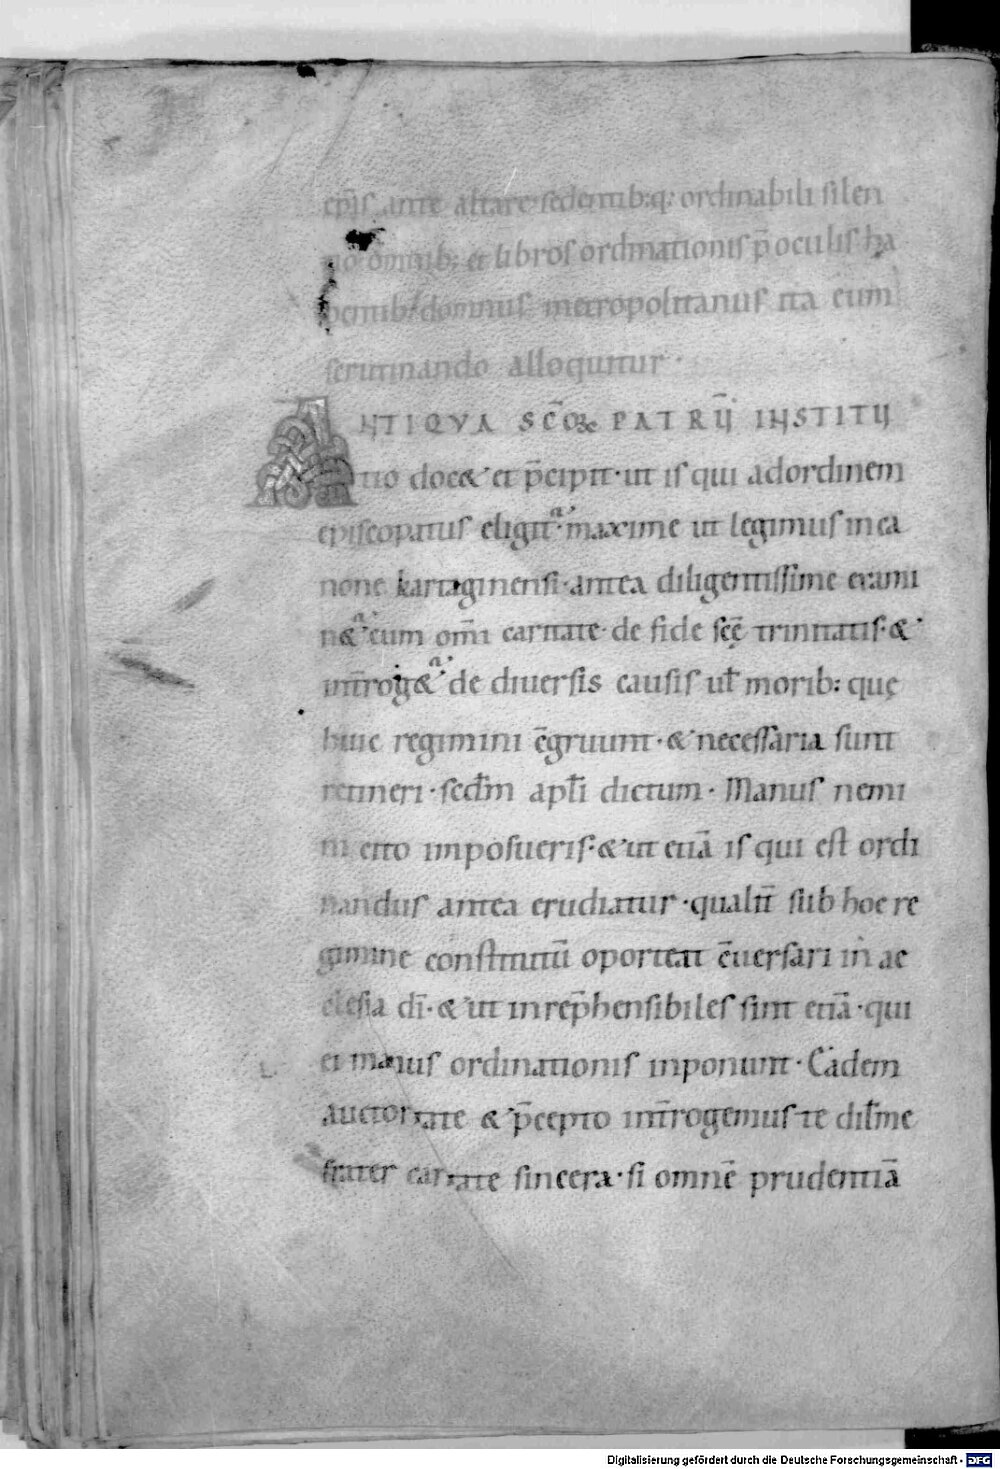 ep̄is ante altare sedentib:q: ordinabili silen
tio omnib; et libros ordinationis p̄ oculis ha
bentib; domnus metropolitanus ita eum
scrutinando alloquitur·
ANTIQVA SC̄OꝜ PATRŪ INSTITU
tio docet et p̄cipit· ut is qui adordinem
episcopatus eligit᷒ maxime ut legimus in ca
none kartaginensi· antea diligentissime exami
n& cum om̄i caritate· de fide sc̄ę trinitatis·&
int̄rog& de diuersis causis ul̄ morib: quę
huic regimini c̄gruunt· & necessaria sunt
retineri· secđm apl̄i dictum· Manus nemi
ni cito imposueris·& ut etiā is qui est ordi
nandus antea erudiatur· qualit̄ sub hoc re
gimine constitutū oporteat c̄uersari in ae
clesia dī·& ut inrep̄hensibiles sint etiā· qui
ei manus ordinationis inponunt· Eadem
auctoritate & p̄cepto int̄rogemus te dil̄me
frater caritate sincera· si omnē prudentiā
Digitalisierung gefördert durch die Deutsche Forschungsgemeinschaft - DFG